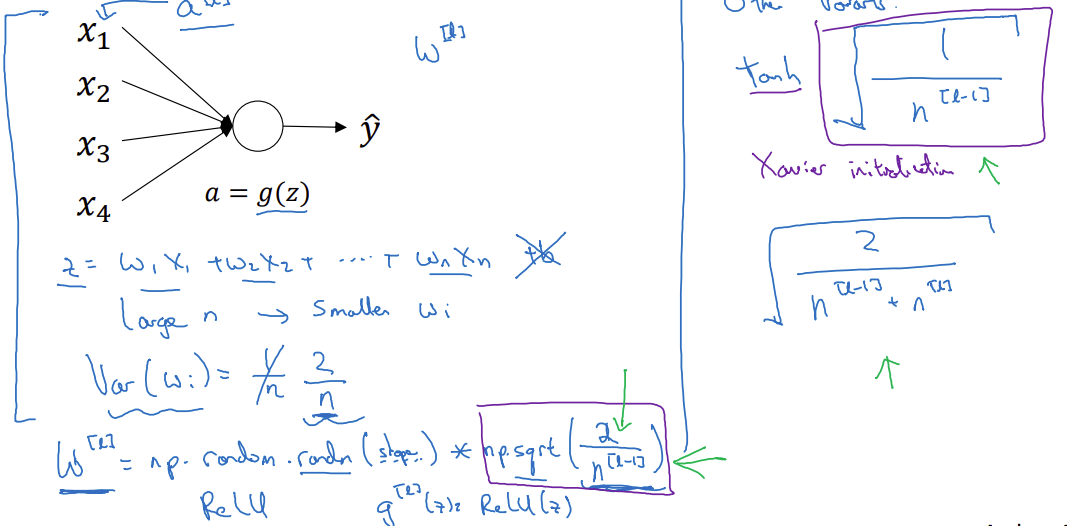 a^[l]
x₁
x₂
x₃
x₄
ŷ
a = g(z)
W^[l]
z = w₁x₁ + w₂x₂ + ····· + wₙxₙ +b
Large n → Smaller wᵢ
Var(wᵢ) = 1/n 2/n
W^[l] = np.random.randn(shape) * np.sqrt(2/n^[l-1])
ReLU g^[l](z) = ReLU(z)
Other variants:
tanh √(1/n^[l-1])
Xavier initialization ↑
√(2/(n^[l-1] + n^[l]))
↑